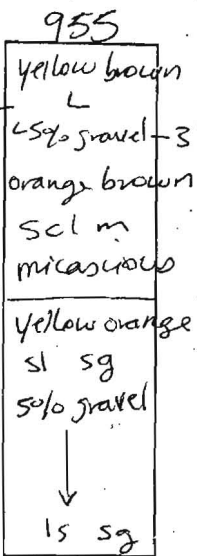 955
yellow brown
L
<5% gravel - 3
orange brown
scl m
micascious
yellow orange
sl sg
50% gravel
ls sg